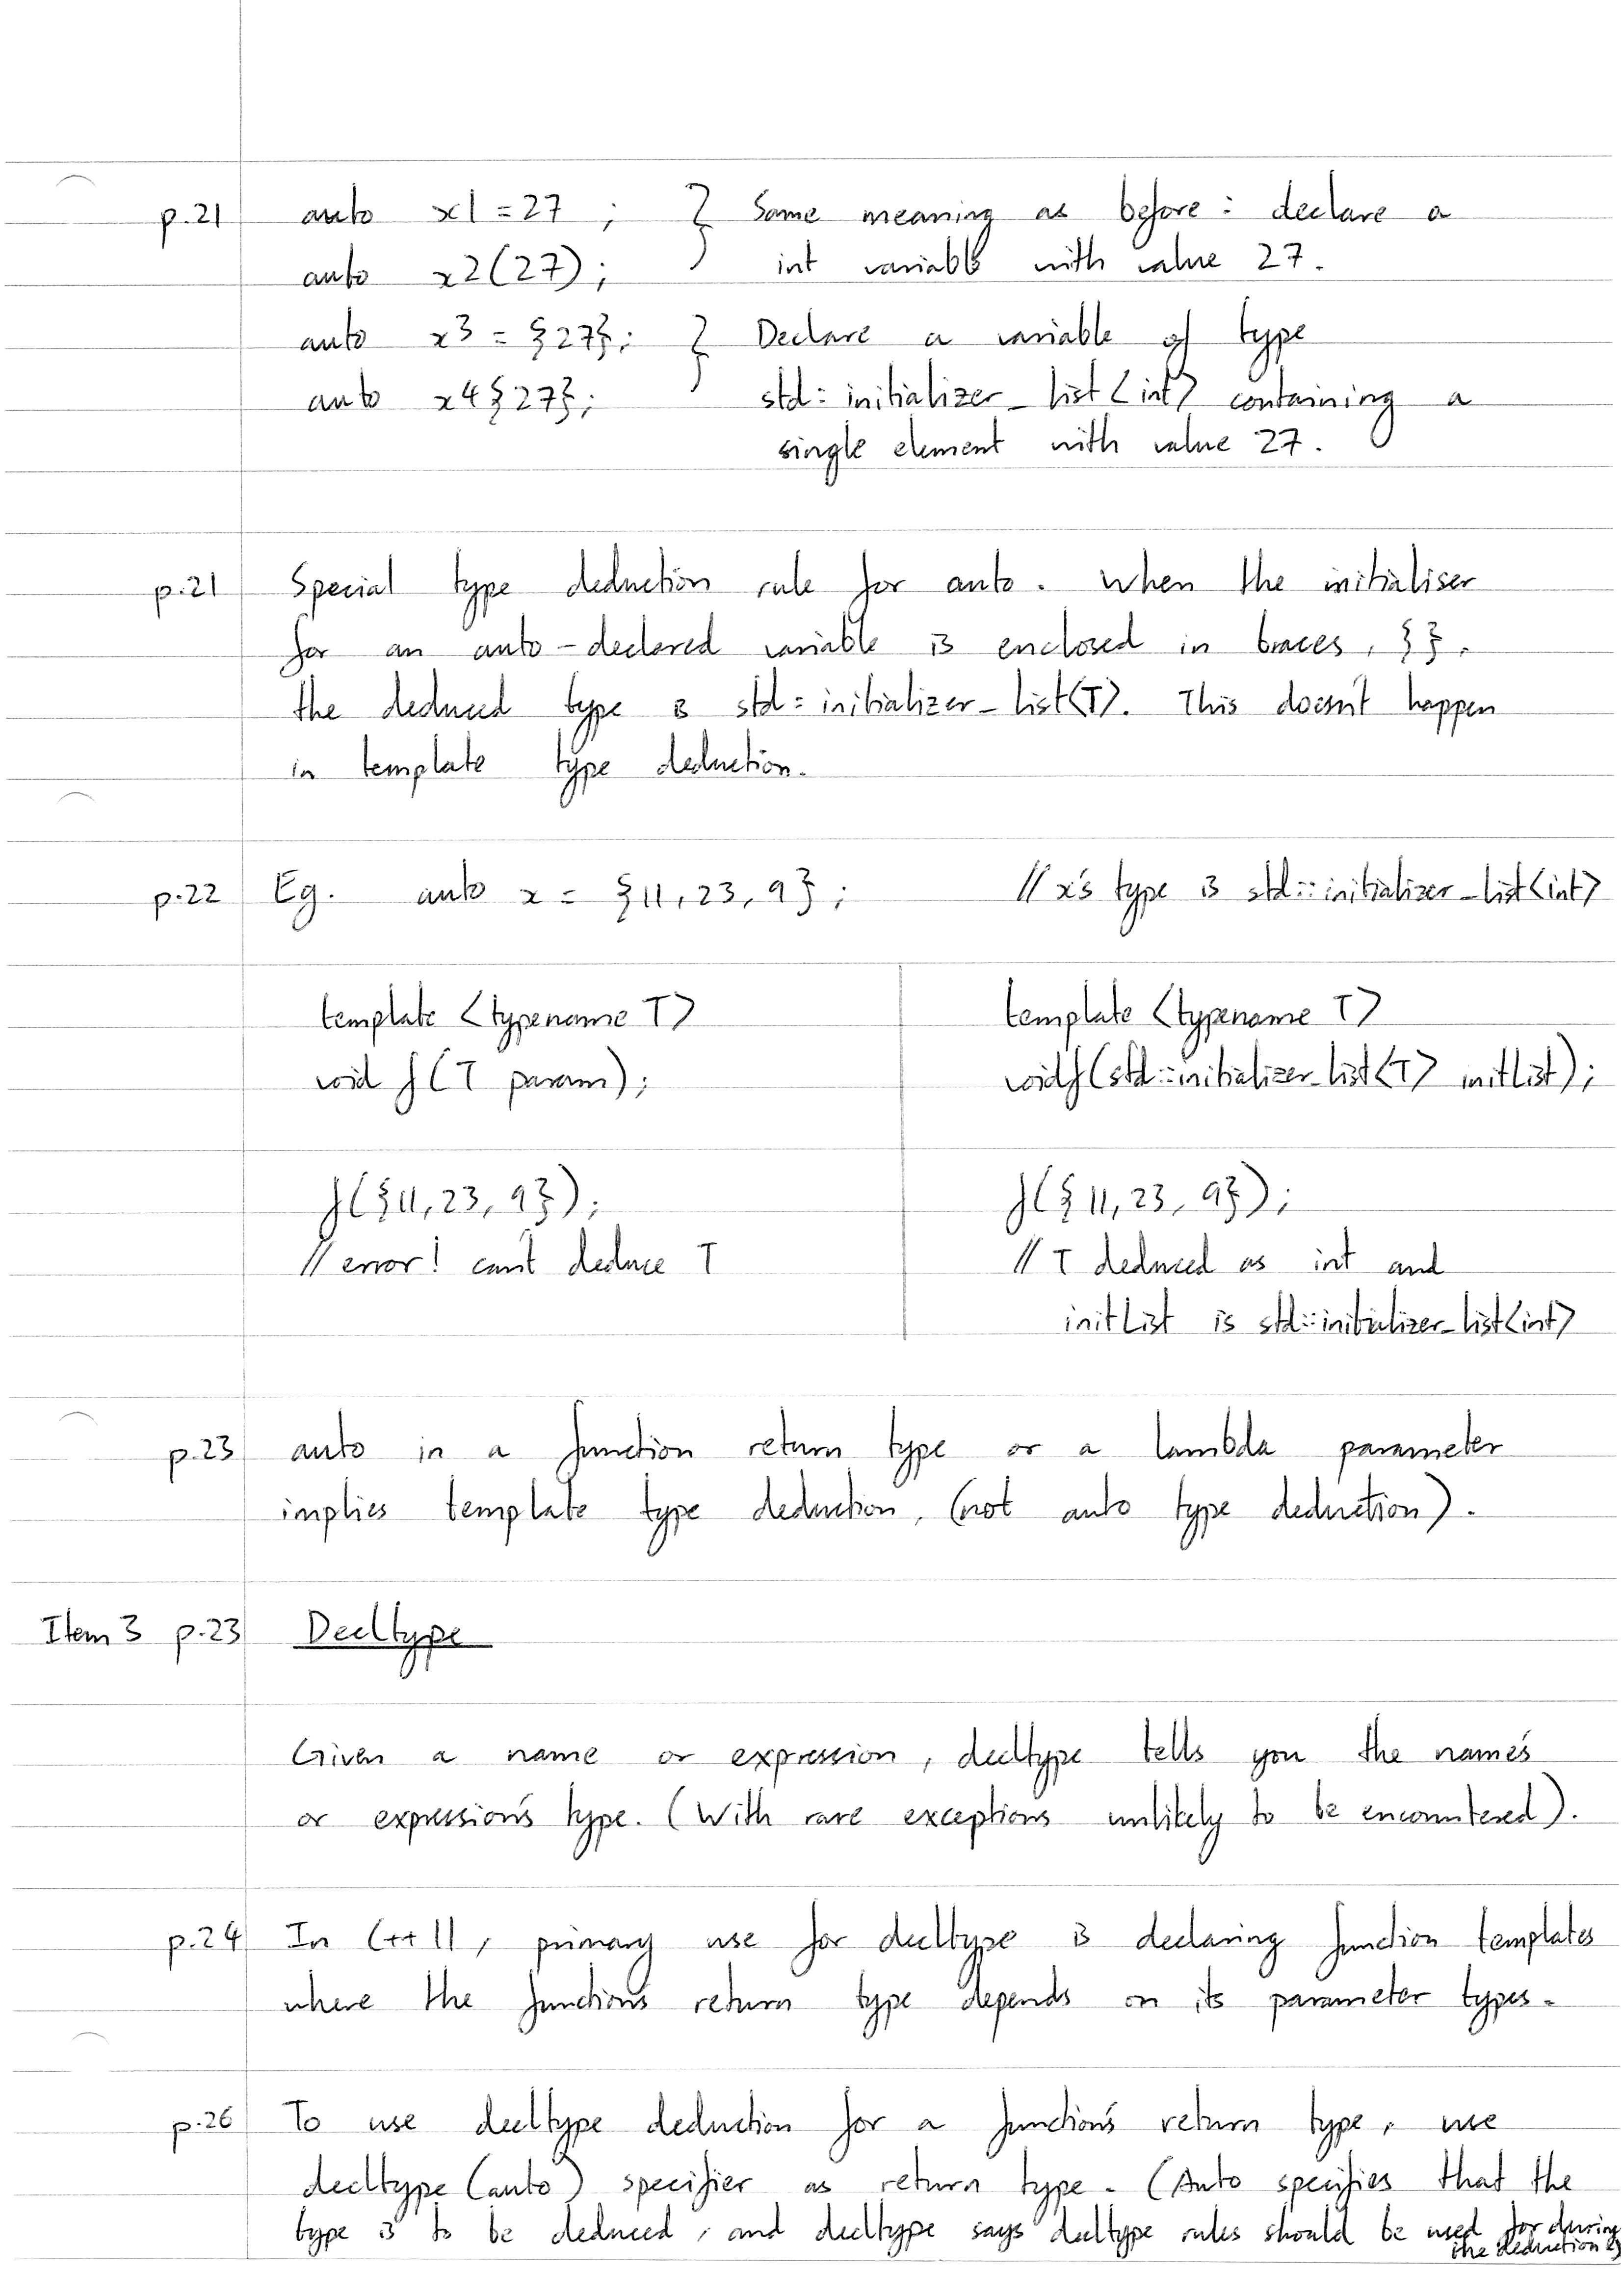 p.21 auto x1 = 27 ; } Same meaning as before : declare a
auto x2(27); int variable with value 27.
auto x3 = {27}; } Declare a variable of type
auto x4{27}; std::initializer_list<int> containing a
single element with value 27.
p.21 Special type deduction rule for auto. When the initialiser
for an auto-declared variable is enclosed in braces, {},
the deduced type is std::initializer_list<T>. This doesn't happen
in template type deduction.
p.22 Eg. auto x = {11, 23, 9}; // x's type is std::initializer_list<int>
template <typename T> template <typename T>
void f(T param); void f(std::initializer_list<T> initList);
f({11, 23, 9}); f({11, 23, 9});
// error! can't deduce T // T deduced as int and
initList is std::initializer_list<int>
p.23 auto in a function return type or a lambda parameter
implies template type deduction, (not auto type deduction).
Item 3 p.23 Decltype
Given a name or expression, decltype tells you the name's
or expression's type. (With rare exceptions unlikely to be encountered).
p.24 In C++11, primary use for decltype is declaring function templates
where the function's return type depends on its parameter types.
p.26 To use decltype deduction for a function's return type, use
decltype(auto) specifier as return type. (Auto specifies that the
type is to be deduced, and decltype says decltype rules should be used for during
the deduction)